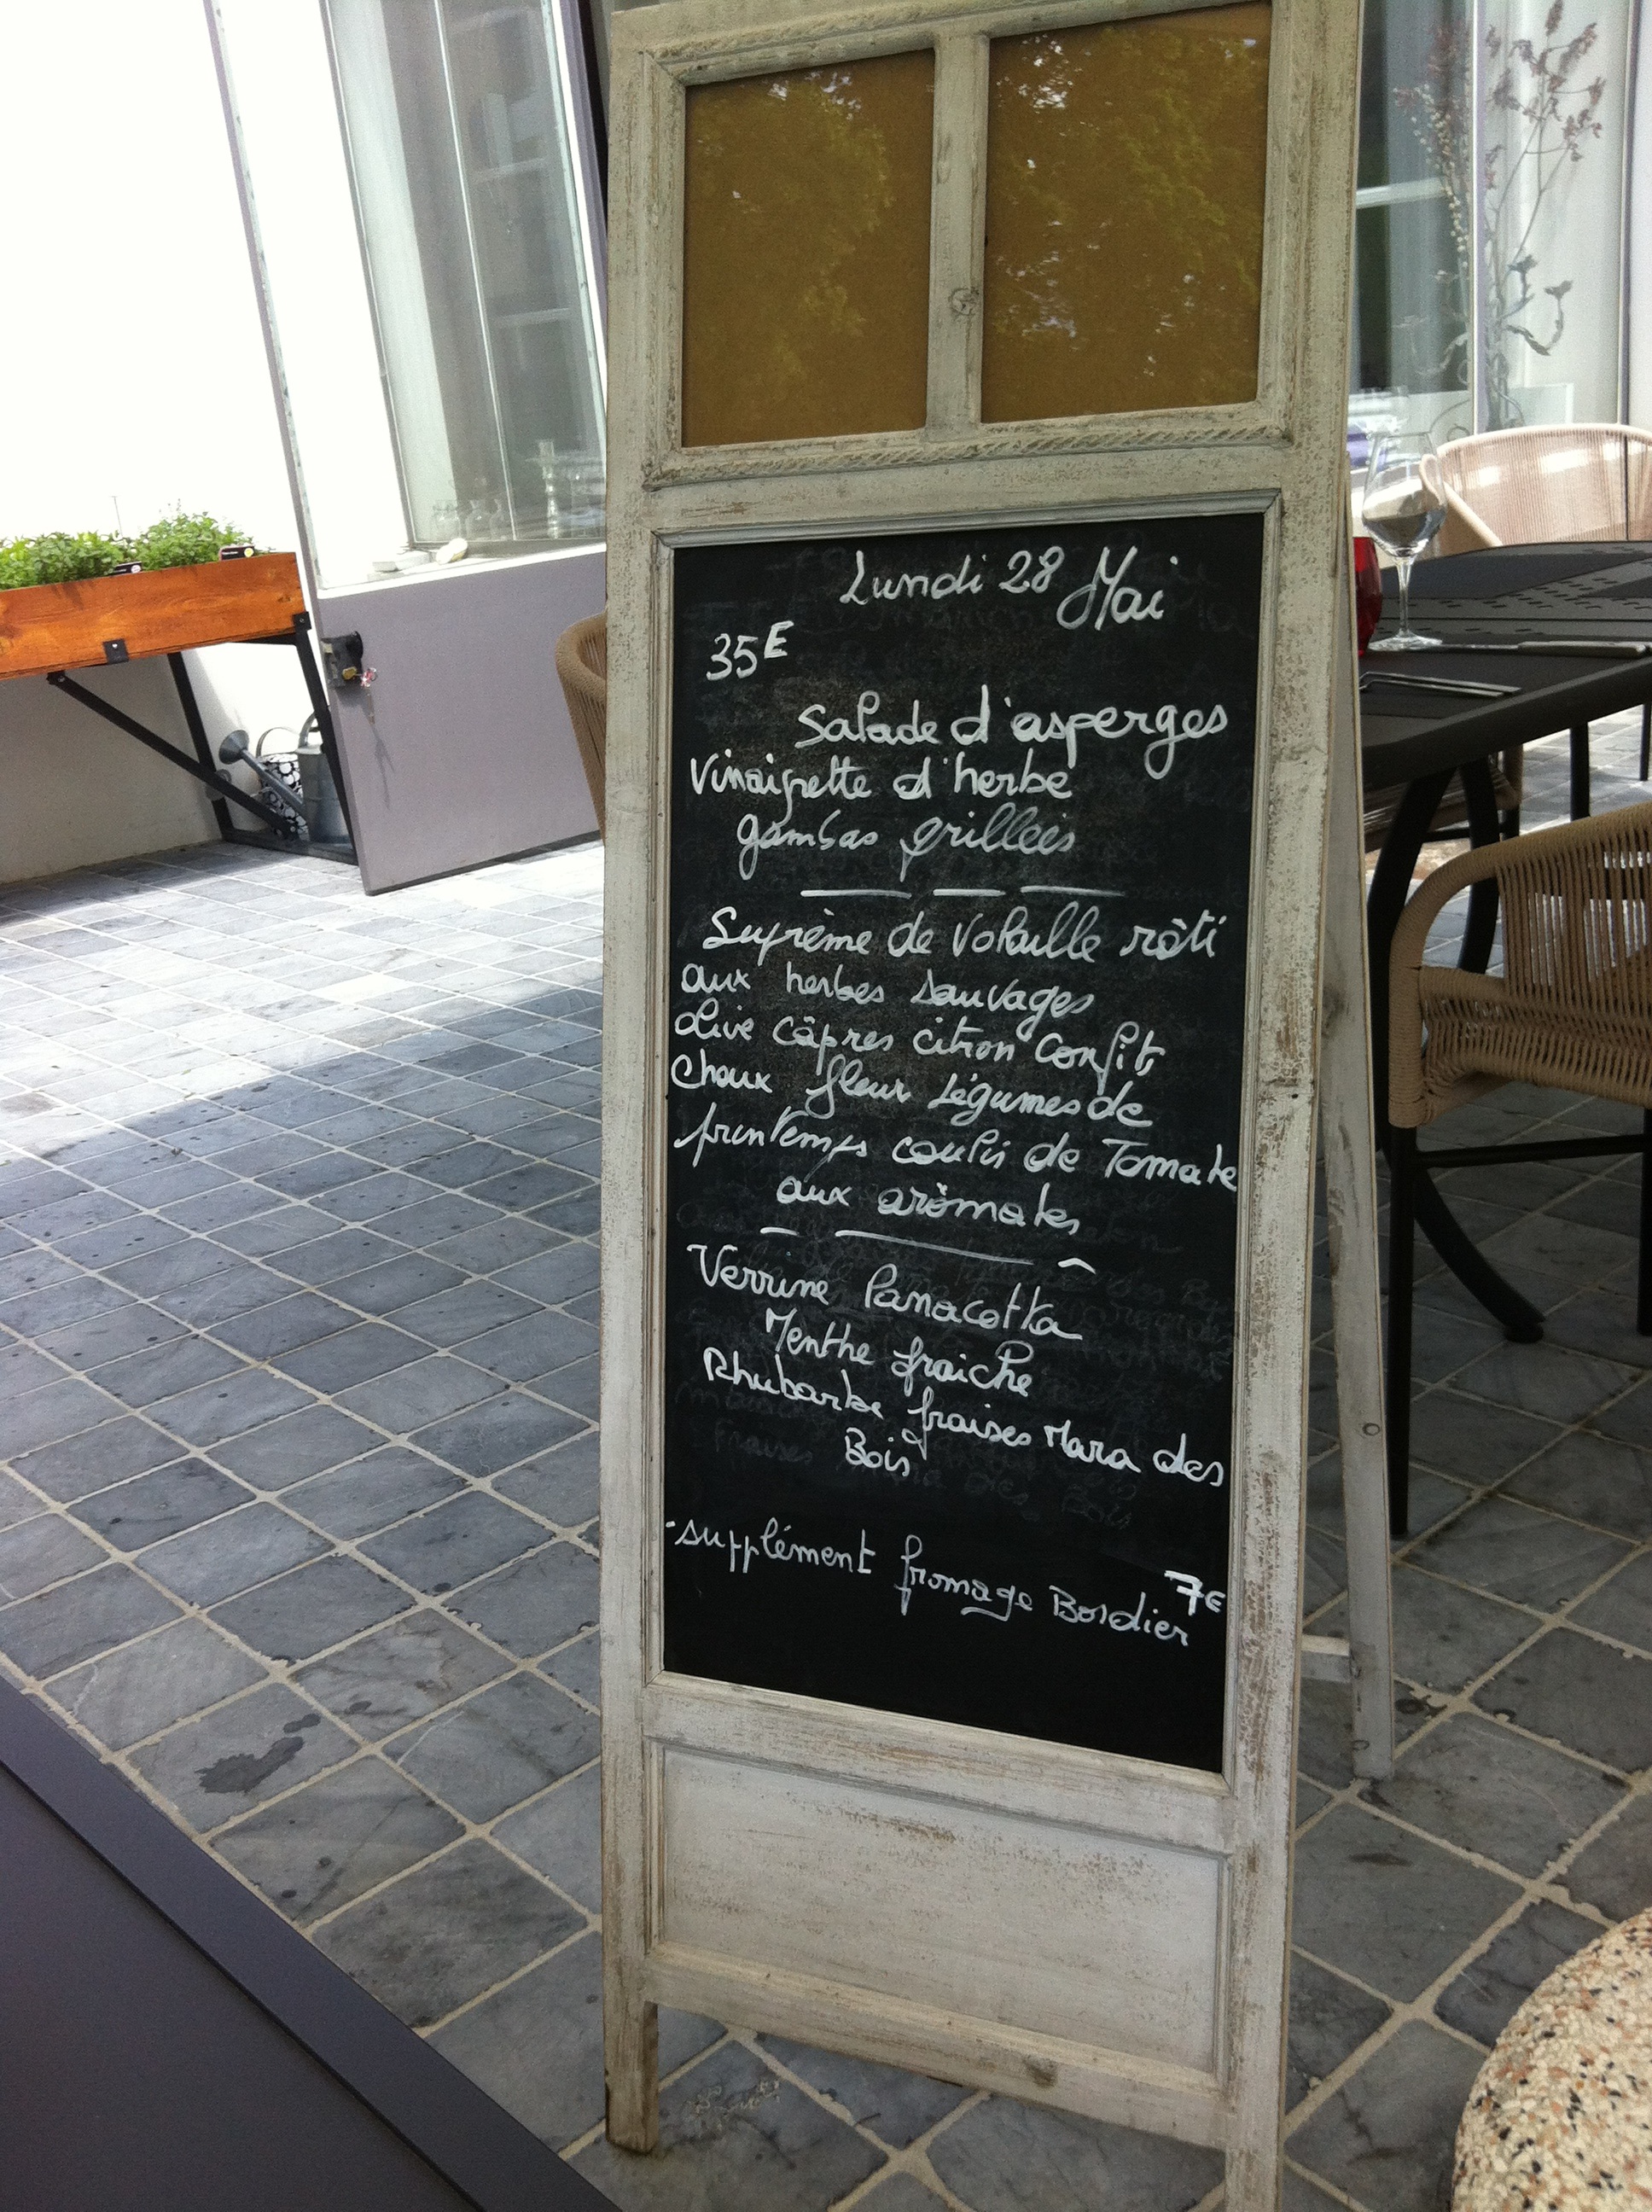 Lundi 28 Mai
35E
Salade d'asperges
Vinaigrette d'herbe
gambas grillées
Suprème de Volaille rôti
aux herbes sauvages
olive câpres citron confit
Choux fleur Légumes de
printemps coulis de Tomate
aux arômates
Verrine Panacotta
Menthe fraiche
Rhubarbe fraises Mara des
Bois
-supplément fromage Bordier 7€